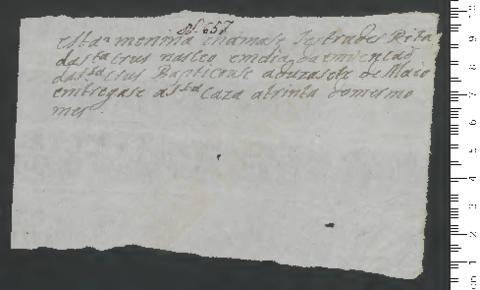 nº 657
esta menina chamase Jertrudes Rita
da sta Crus nasceo em dia da emvencaõ
da sta Crus Bapticouse a duzasete de Maio
emtregase a sta Caza a trinta do mesmo
mes